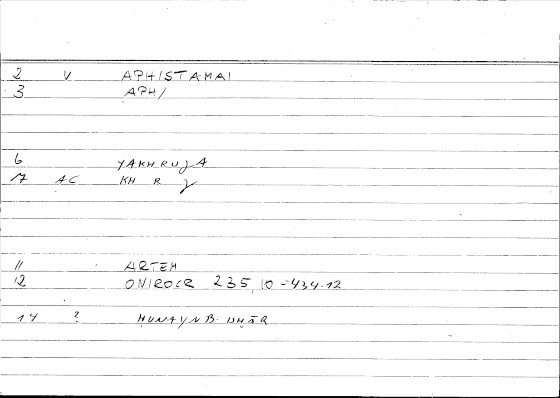 2 V APHISTAMAI
3 APH/
6 YAKHRUJA
17 AC KH R J
11 ARTEM
12 ONIROCR 235,10-434.12
14 ? HUNAYN B.